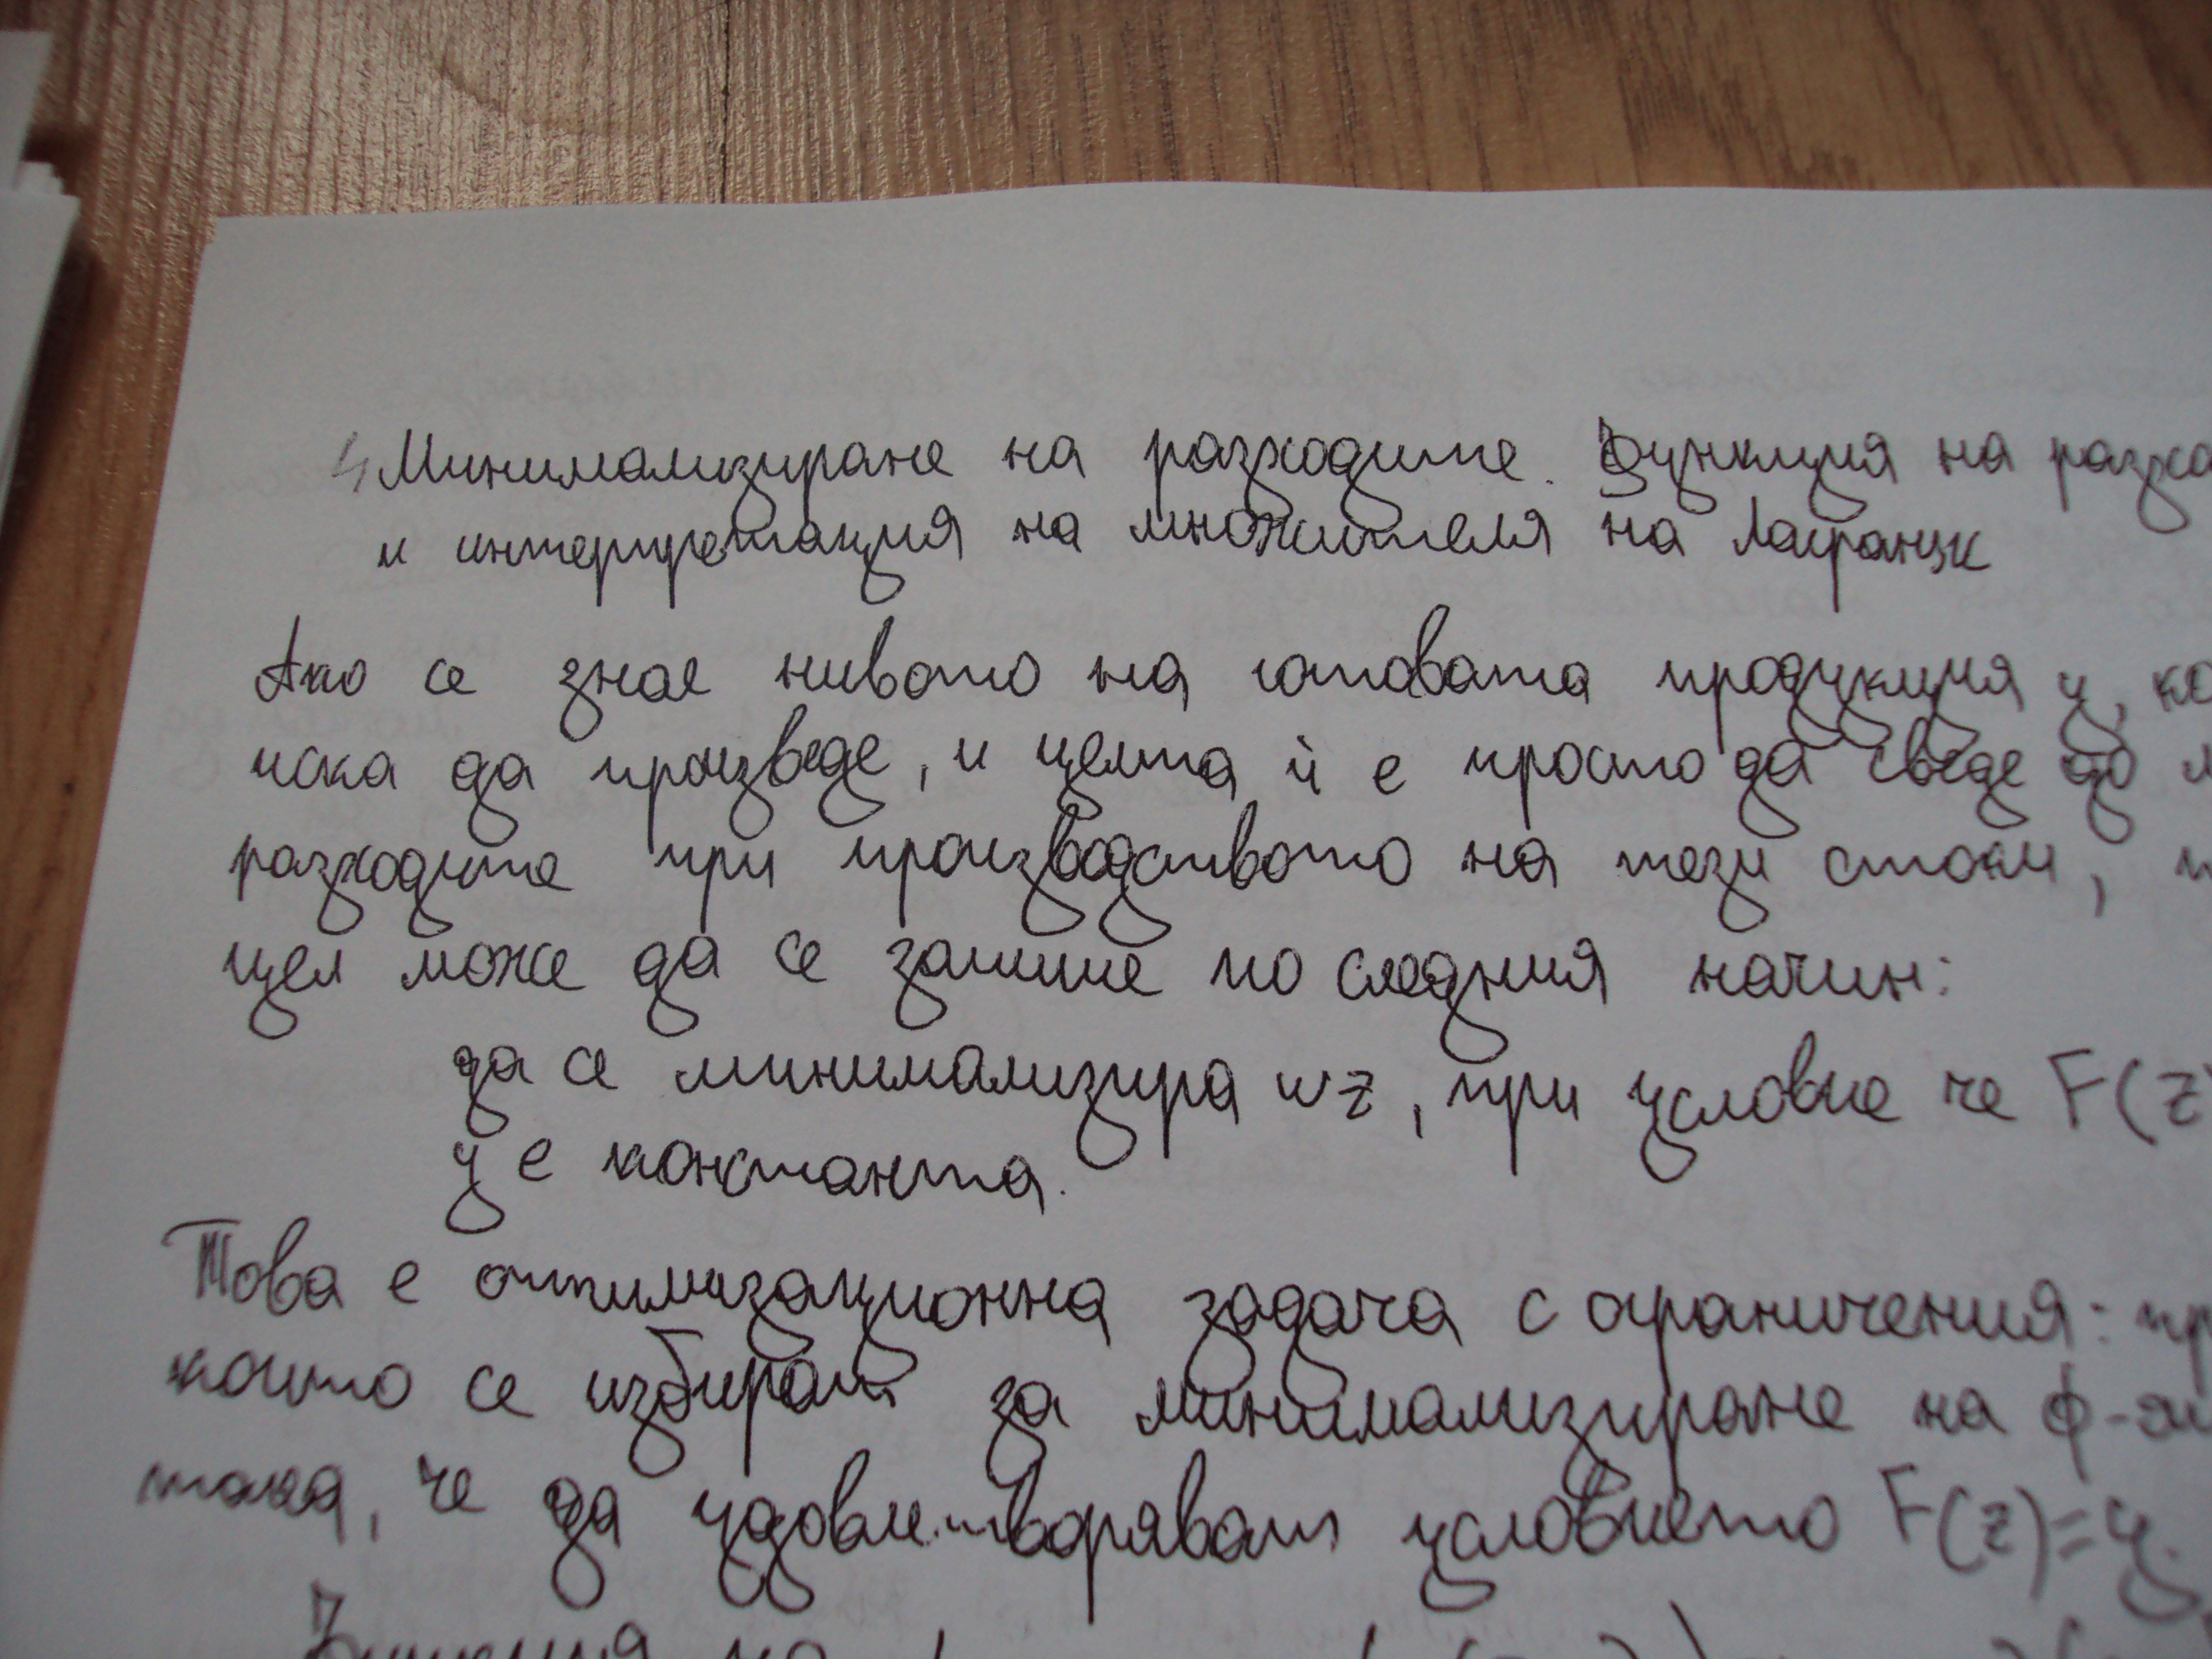 4 Минимализиране на разходите. Функция на разхо
и интерпретация на множителя на Лагранж
Ако се знае нивото на готовата продукция y, ко
иска да произведе, и целта ѝ е просто да сведе до м
разходите при производството на тези стоки,
цел може да се запише по следния начин:
да се минимализира wz, при условие че F(z)
y е константа.
Това е оптимизационна задача с ограничения: пр
които се избират за минимализиране на ф-я
така, че да удовлетворяват условието F(z)=y.